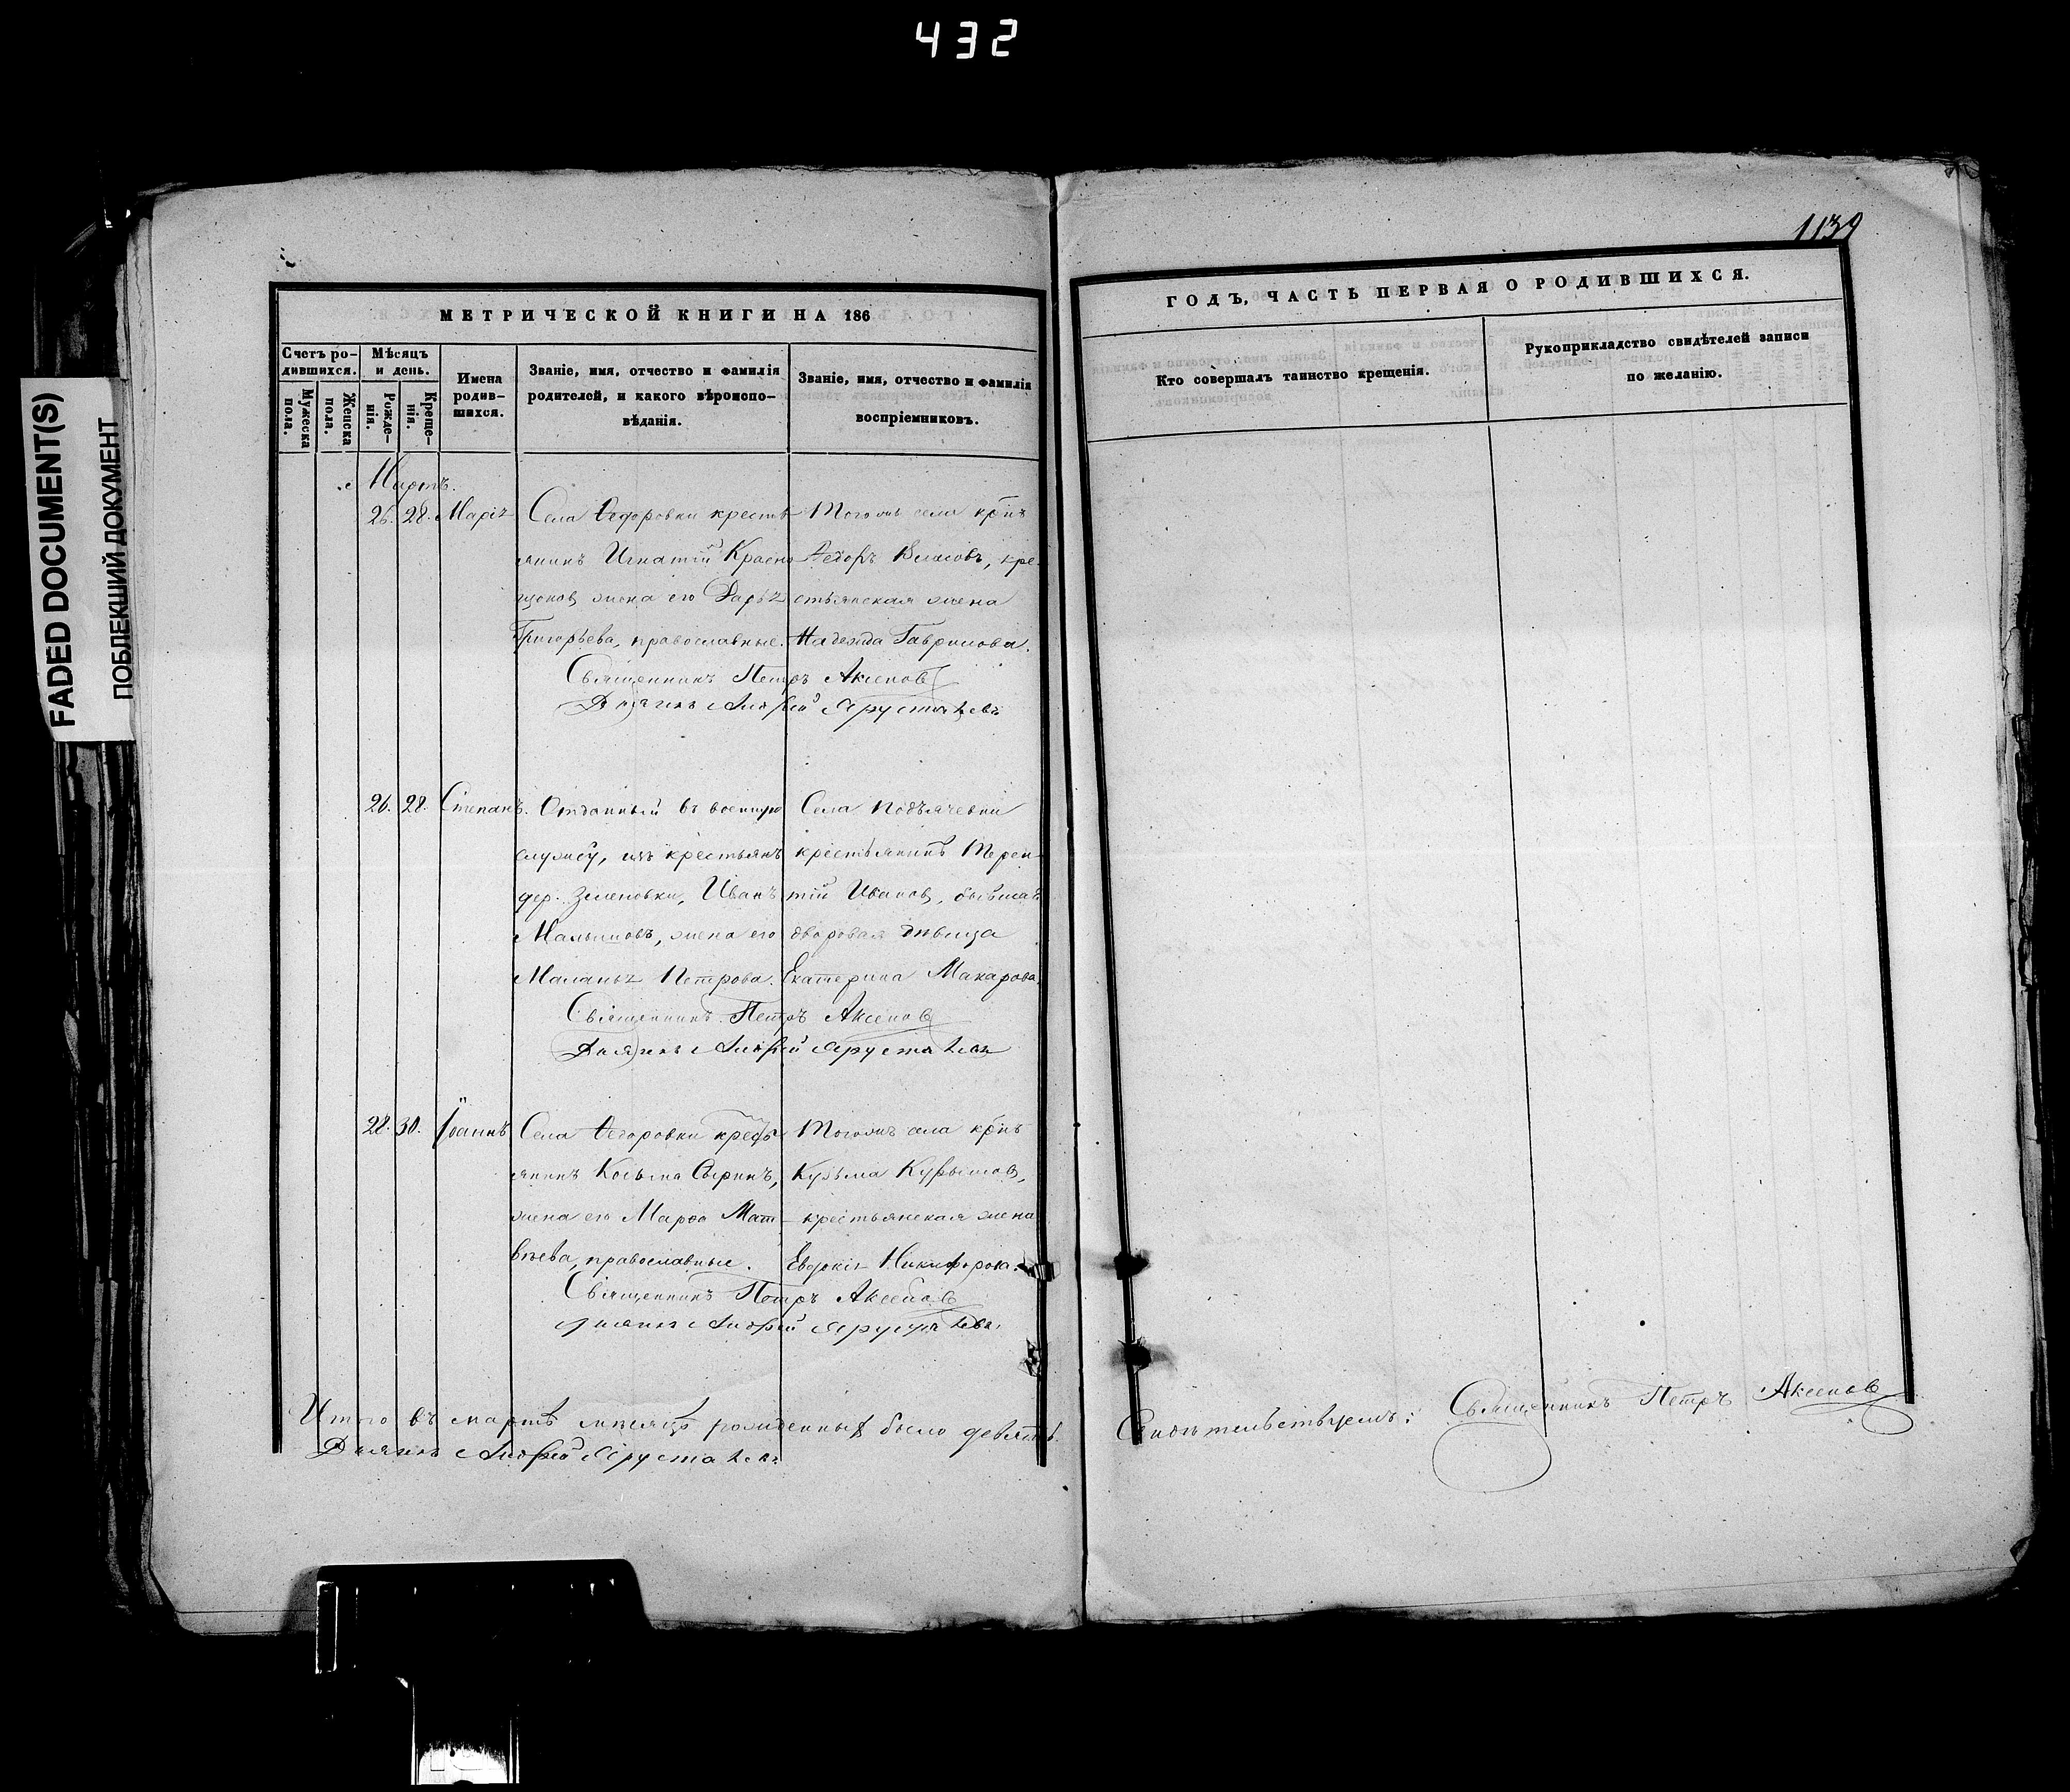 432
FADED DOCUMENT(S)
ПОБЛЕКШИЙ ДОКУМЕНТ
МЕТРИЧЕСКОЙ КНИГИ НА 186
Счетъ ро-
дившихся.
Мужеска
пола.
Женска
пола.
Мѣсяцъ
и день.
Рожде-
нія.
Креще-
нія.
Имена
родив-
шихся.
Званіе, имя, отчество и фамилія
родителей, и какого вѣроиспо-
вѣданія.
Званіе, имя, отчество и фамилія
воспріемниковъ.
Мартъ.
26. 28. Марія
Села Ѳедоровки кресть
янинъ Игнатій Красно
щоковъ жена его Дарья
Григорьева, православные.
Тогожъ села крнъ
Ѳедоръ Власовъ, кре-
стьянская жена
Надежда Гаврилова.
Священникъ Петръ Аксеновъ
Дьячекъ Андрей
26. 28. Степанъ.
Отданный въ военную
службу, изъ крестьянъ
дер. Зиленовки, Иванъ
Малышовъ, жена его
Маланья Петрова.
Села Подъячевки
крестьянинъ Терен-
тій Ивановъ, бывшая
дворовая дѣвица
Екатерина Макарова.
Священникъ Петръ Аксеновъ
Дьячекъ Андрей
28. 30. Іоаннъ
Села Ѳедоровки кресть
янинъ Косьма Сыринъ,
жена его Марѳа Мат-
вѣева, православные.
Тогожъ села крнъ
Кузьма Курышовъ,
крестьянская жена
Евдокія Никифорова.
Священникъ Петръ Аксеновъ
Дьячекъ Андрей
Итого въ мартѣ мѣсяцѣ рожденныхъ было девять.
Дьячекъ Андрей
1139
ГОДЪ, ЧАСТЬ ПЕРВАЯ О РОДИВШИХСЯ.
Кто совершалъ таинство крещенія.
Рукоприкладство свидѣтелей записи
по желанію.
Свидѣтельствуемъ: Священникъ Петръ Аксеновъ